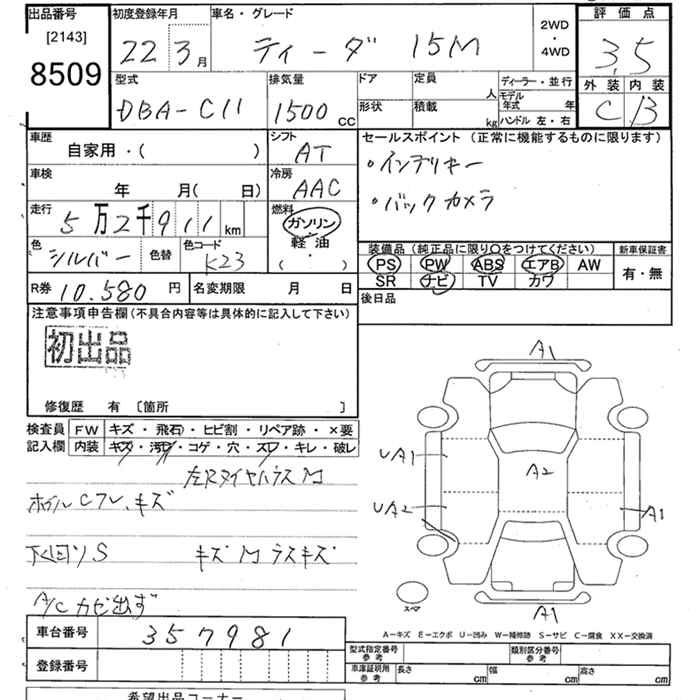 出品番号
[2143]
8509
初度登録年月
22 3月
車名・グレード
ティーダ 15M
2WD
・
4WD
評価点
3.5
型式
DBA-C11
排気量
1500 CC
ドア
形状
定員 人
積載 kg
ディーラー・並行
モデル年式 年
ハンドル 左・右
外装 内装
C B
車歴
自家用・( )
シフト
AT
セールスポイント (正常に機能するものに限ります)
・インテリキー
・バックカメラ
車検
年 月( 日)
冷房
AAC
走行
5万2千911km
燃料
ガソリン
軽・油
( )
色
シルバー
色替
色コード
K23
装備品 (純正品に限り○をつけてください)
新車保証書
PS PW ABS エアB AW
SR ナビ TV カワ
有・無
R券 10.580 円
名変期限 月 日
後日品
注意事項申告欄(不具合内容等は具体的に記入して下さい)
初出品
修復歴 有 〔箇所 〕
検査員記入欄
FW キズ・飛石・ヒビ割・リペア跡・×要
内装 キズ・汚れ・コゲ・穴・スレ・キレ・破レ
左Rタイヤハウス M
ホイルCフレ、キズ
下回り S
キズ M ラスキズ
A/C カビ出ず
A1
UA1
A2
UA2
A1
A1
スペア
A-キズ E-エクボ U-凹み W-補修跡 S-サビ C-腐食 XX-交換済
車台番号 357981
登録番号
型式指定番号 参考
類別区分番号 参考
車庫証明用 参考
長さ cm
幅 cm
高さ cm
希望出品コーナー